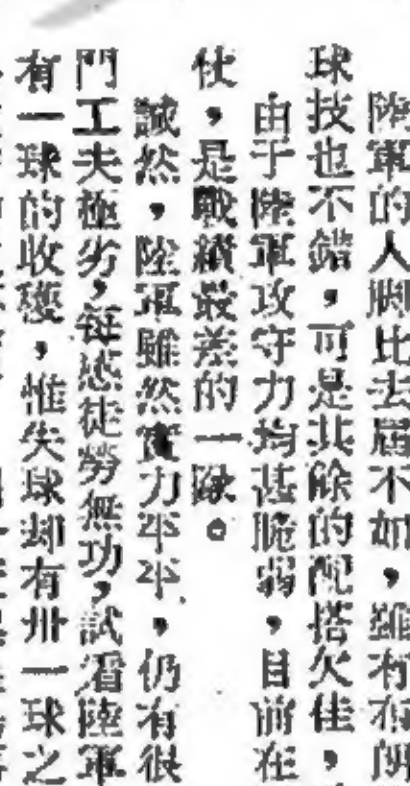 陸軍的人脚比去屆不如，雖有
球技也不錯，可是其餘的配搭欠佳，
由于陸軍攻守力均甚脆弱，目前在
仗，是戰績最差的一隊。
誠然，陸軍雖然實力平平，仍有很
門工夫極劣，每感徒勞無功，試看陸軍
有一球的收穫，惟失球却有卅一球之